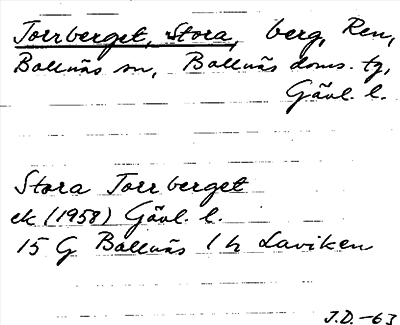 Torrberget, Stora, berg, Ren,
Bollnäs sn, Bollnäs doms. tg,
Gävl. l.
Stora Torrberget
ek (1958) Gävl. l.
15 G Bollnäs 1 h Laviken
J.D. -63